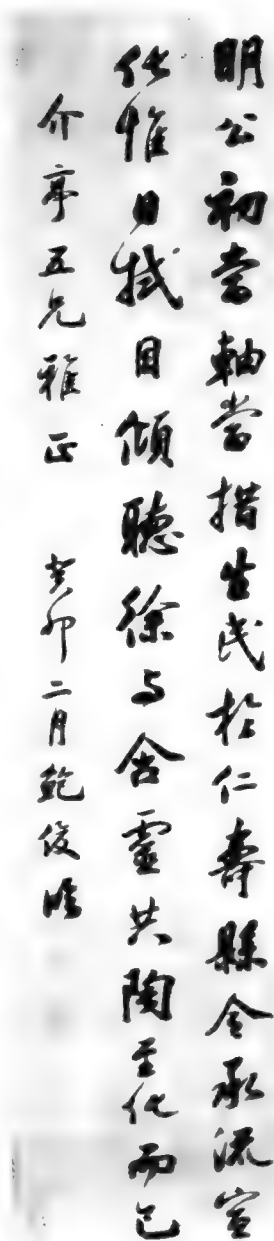 明公初當軸當措生民於仁壽縣令承流宣
化惟日拭目傾聽徐与含靈共陶至化而已
介亭五兄雅正 癸卯二月鮑俊臨